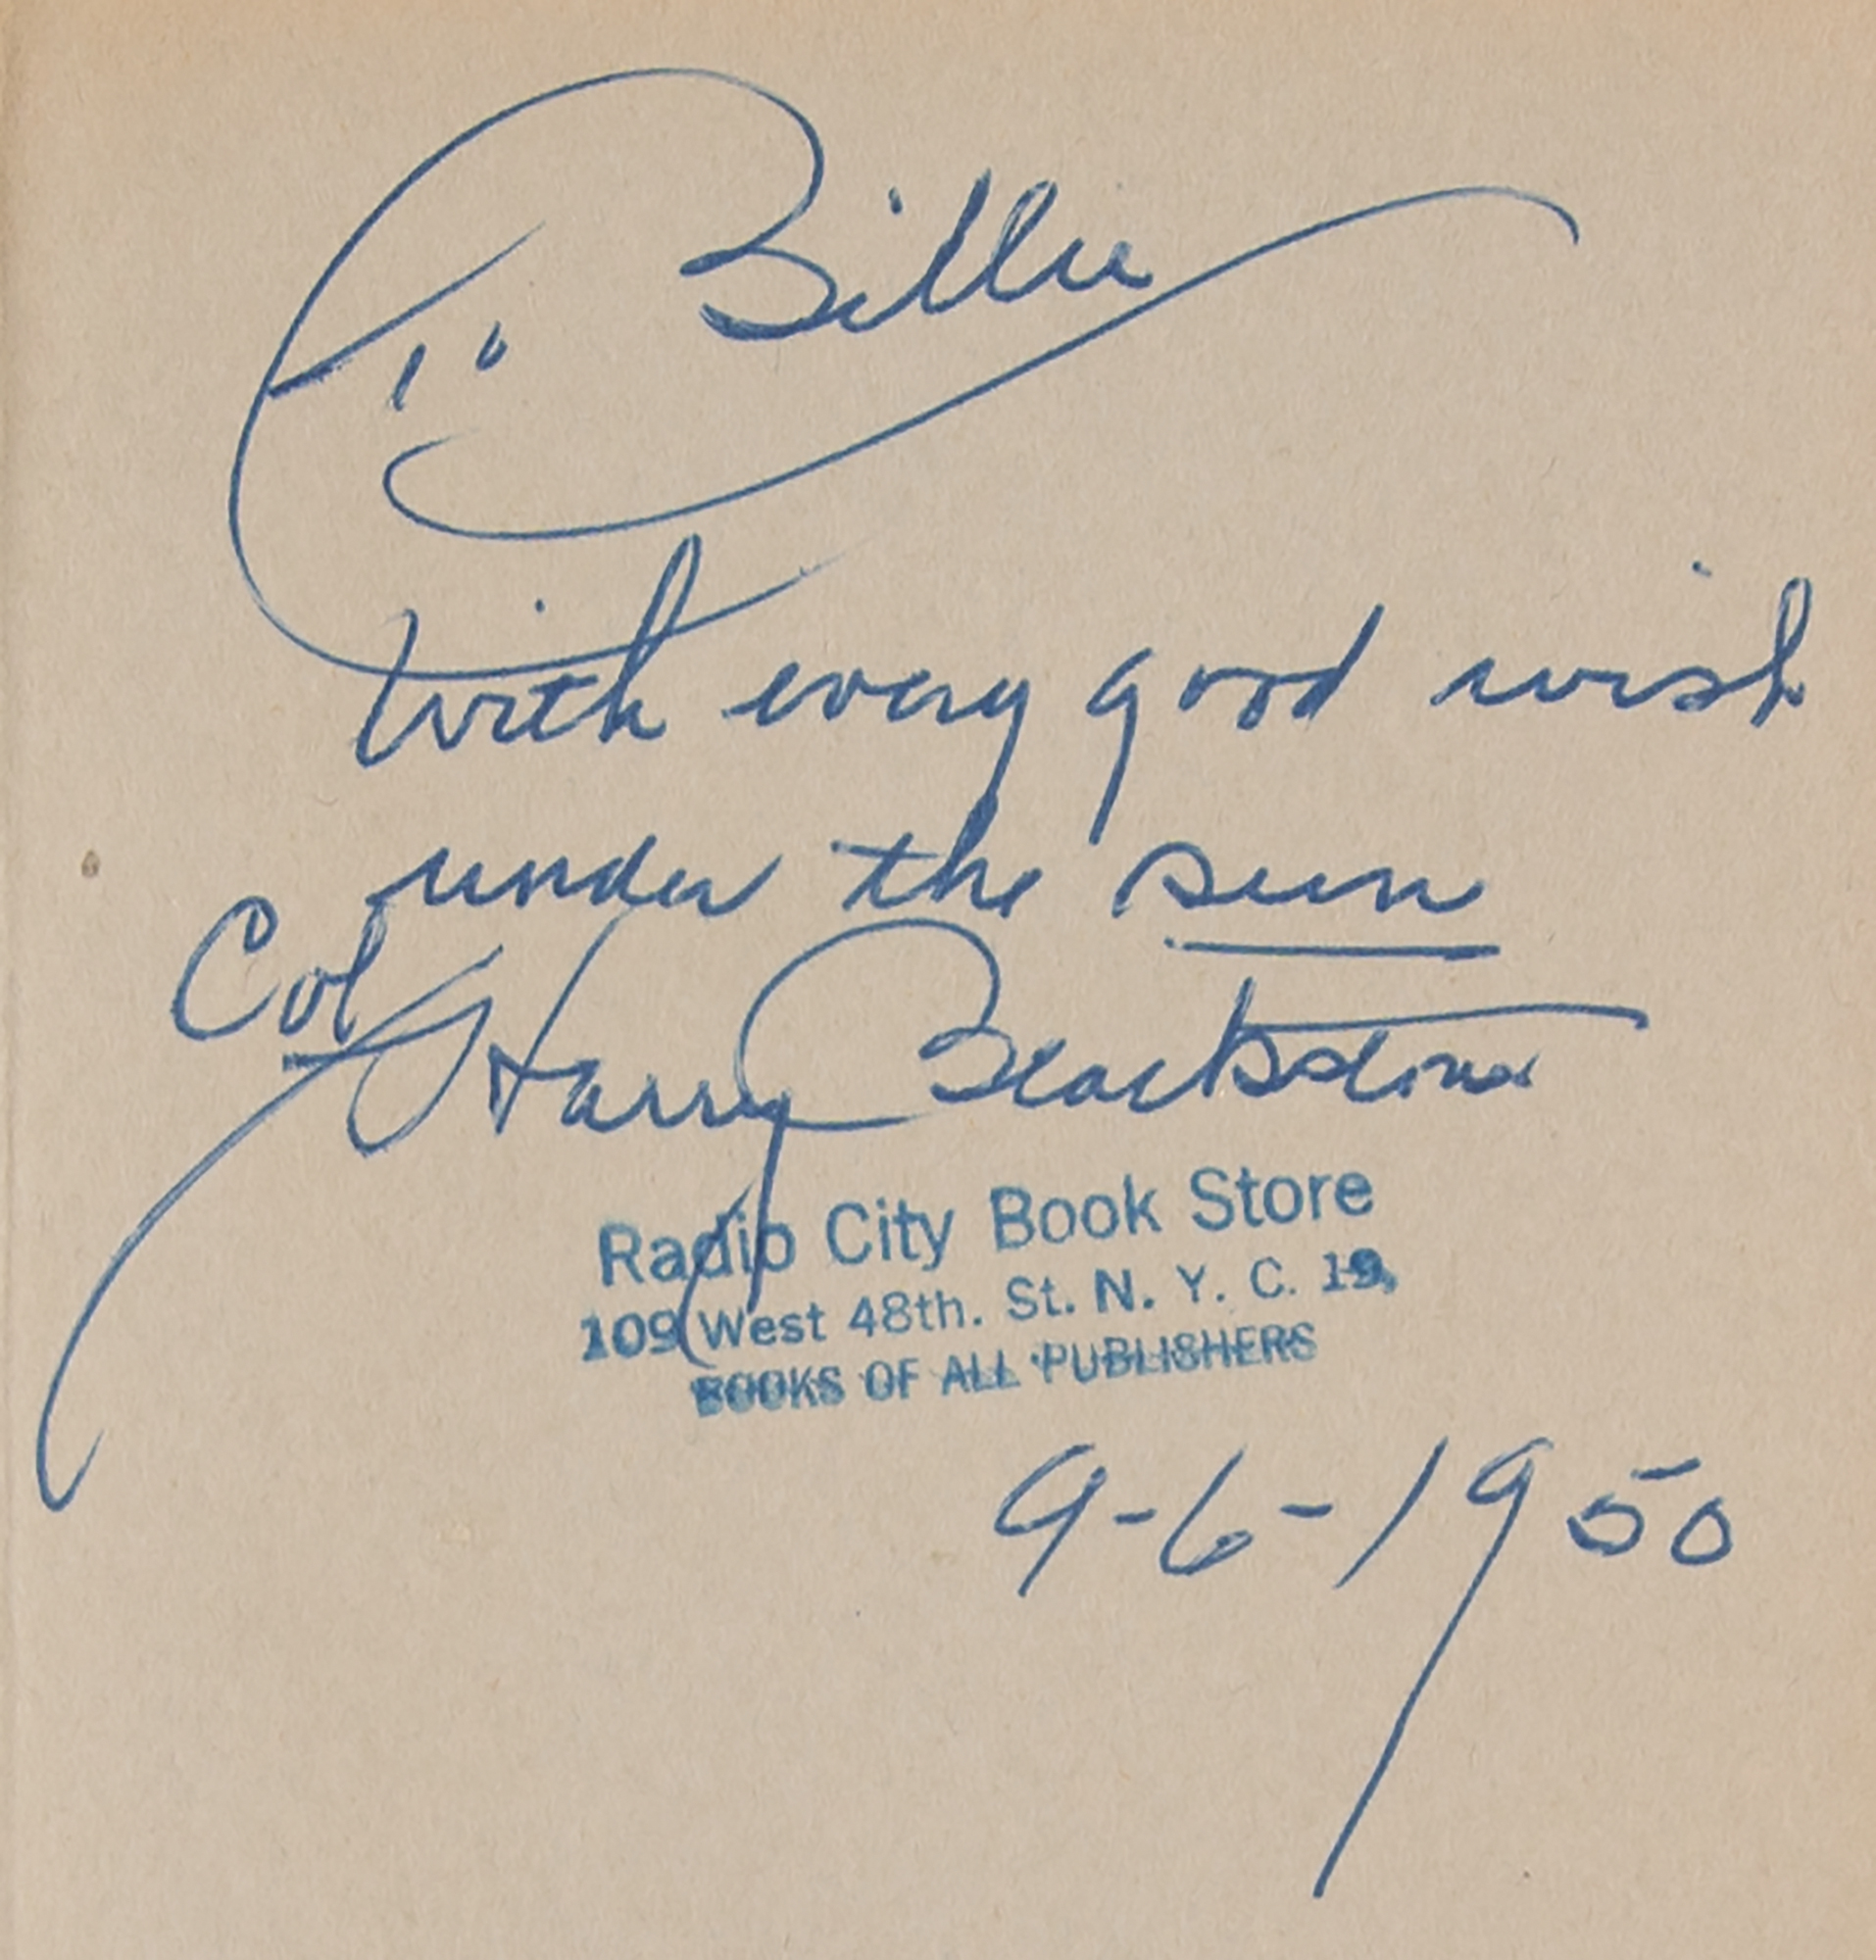 Billie
With every good wish
under the sun
Col Harry Blackstone
Radio City Book Store
109 West 48th. St. N. Y. C. 19,
BOOKS OF ALL PUBLISHERS
9-6-1950